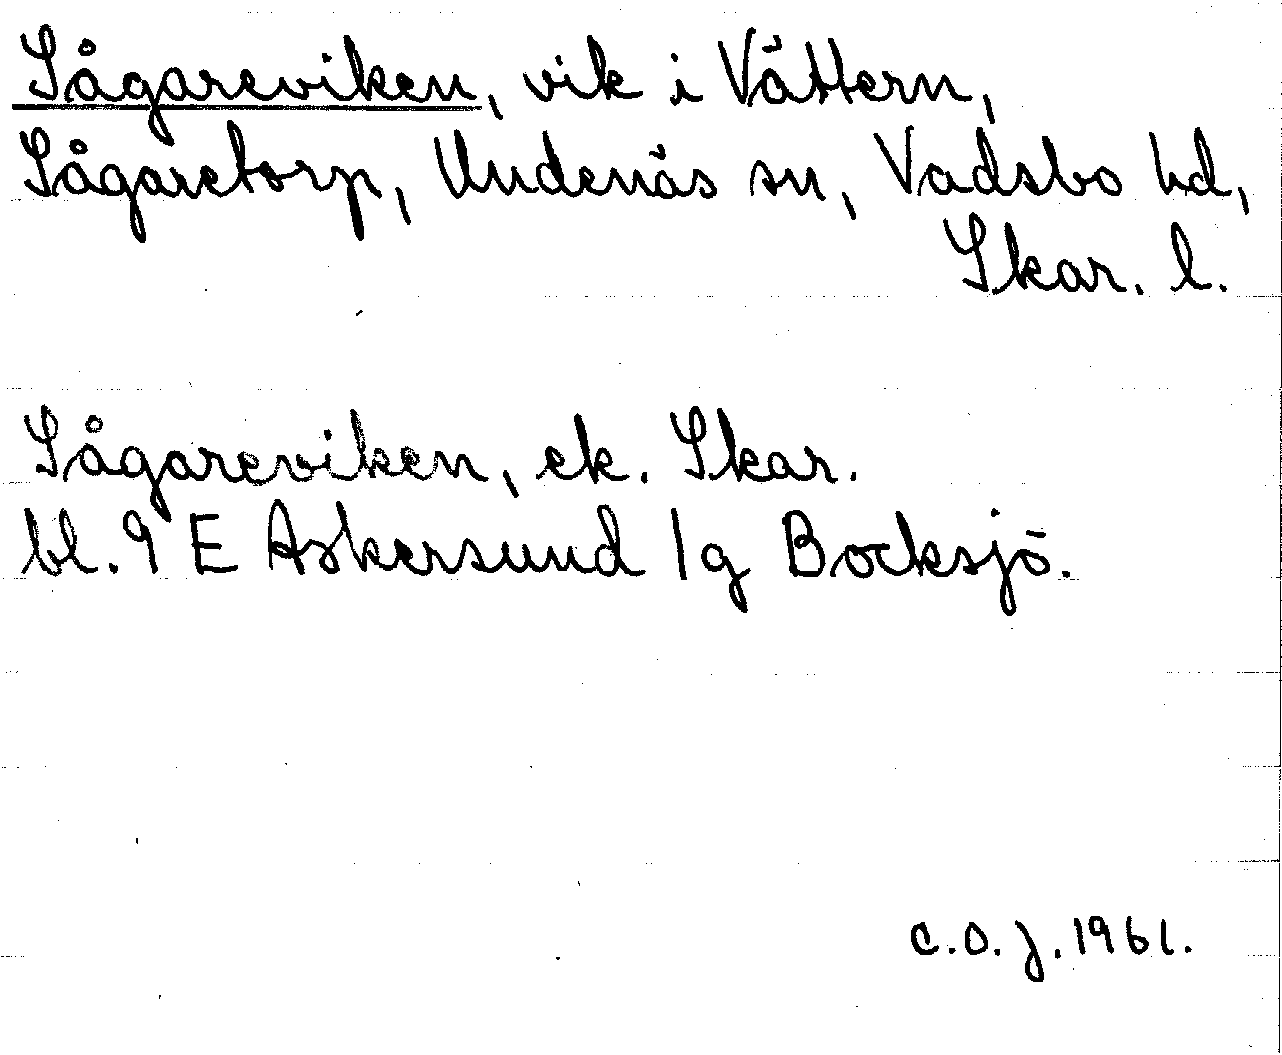 Sågareviken, vik i Vättern,
Sågaretorp, Undenäs sn, Vadsbo hd,
Skar. l.
Sågareviken, ek. Skar.
bl. 9 E Askersund 1g Bocksjö.
C.O.J. 1961.